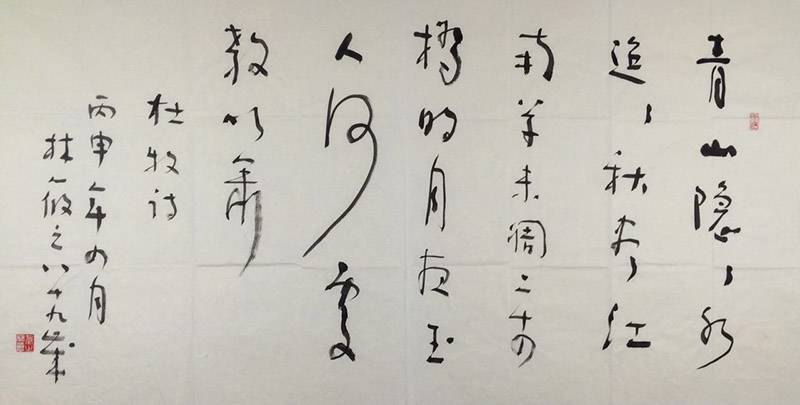 青山隐、水
迢、秋尽江
南草未凋二十四
桥明月夜玉
人何处
教吹箫
杜牧诗
丙申年四月
林筱之八十九岁